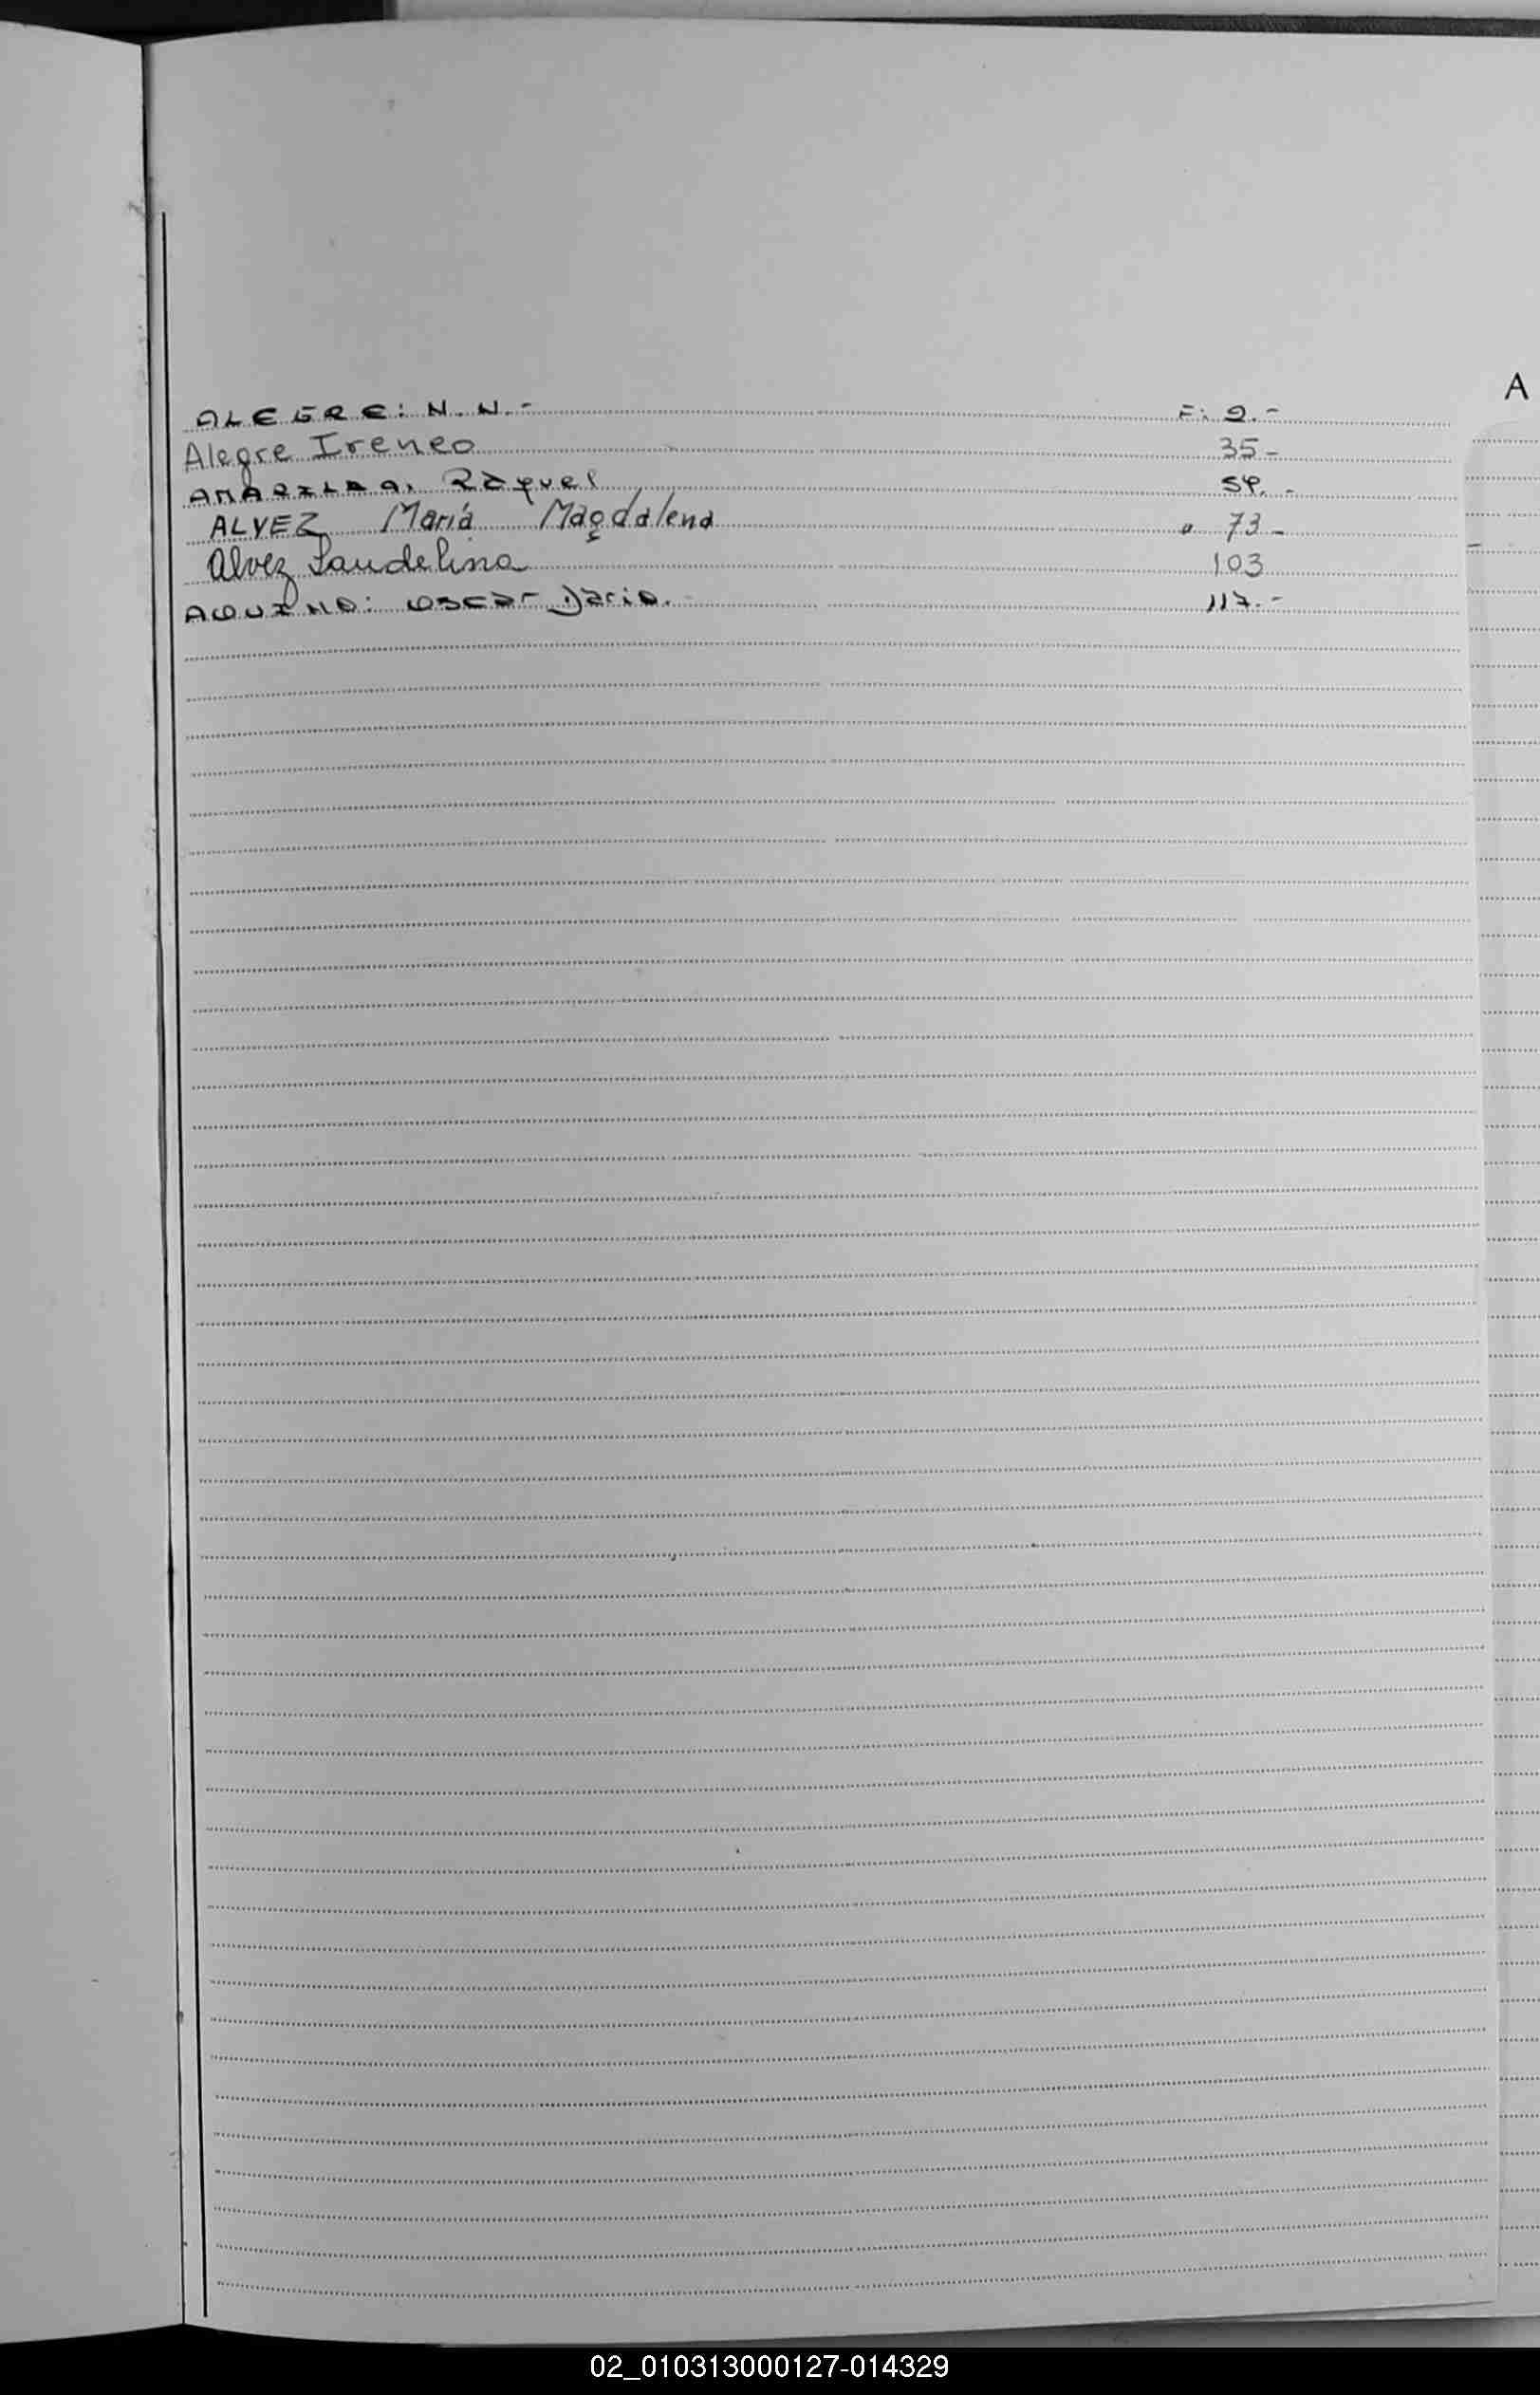 A
ALEGRE: N.N.- F: 9.-
Alegre Ireneo 35-
AMARILLA, Raquel 54.-
ALVEZ María Magdalena " 73-
Alvez Laudelina 103
AQUINO: Oscar Dario. 117.-
02_010313000127-014329